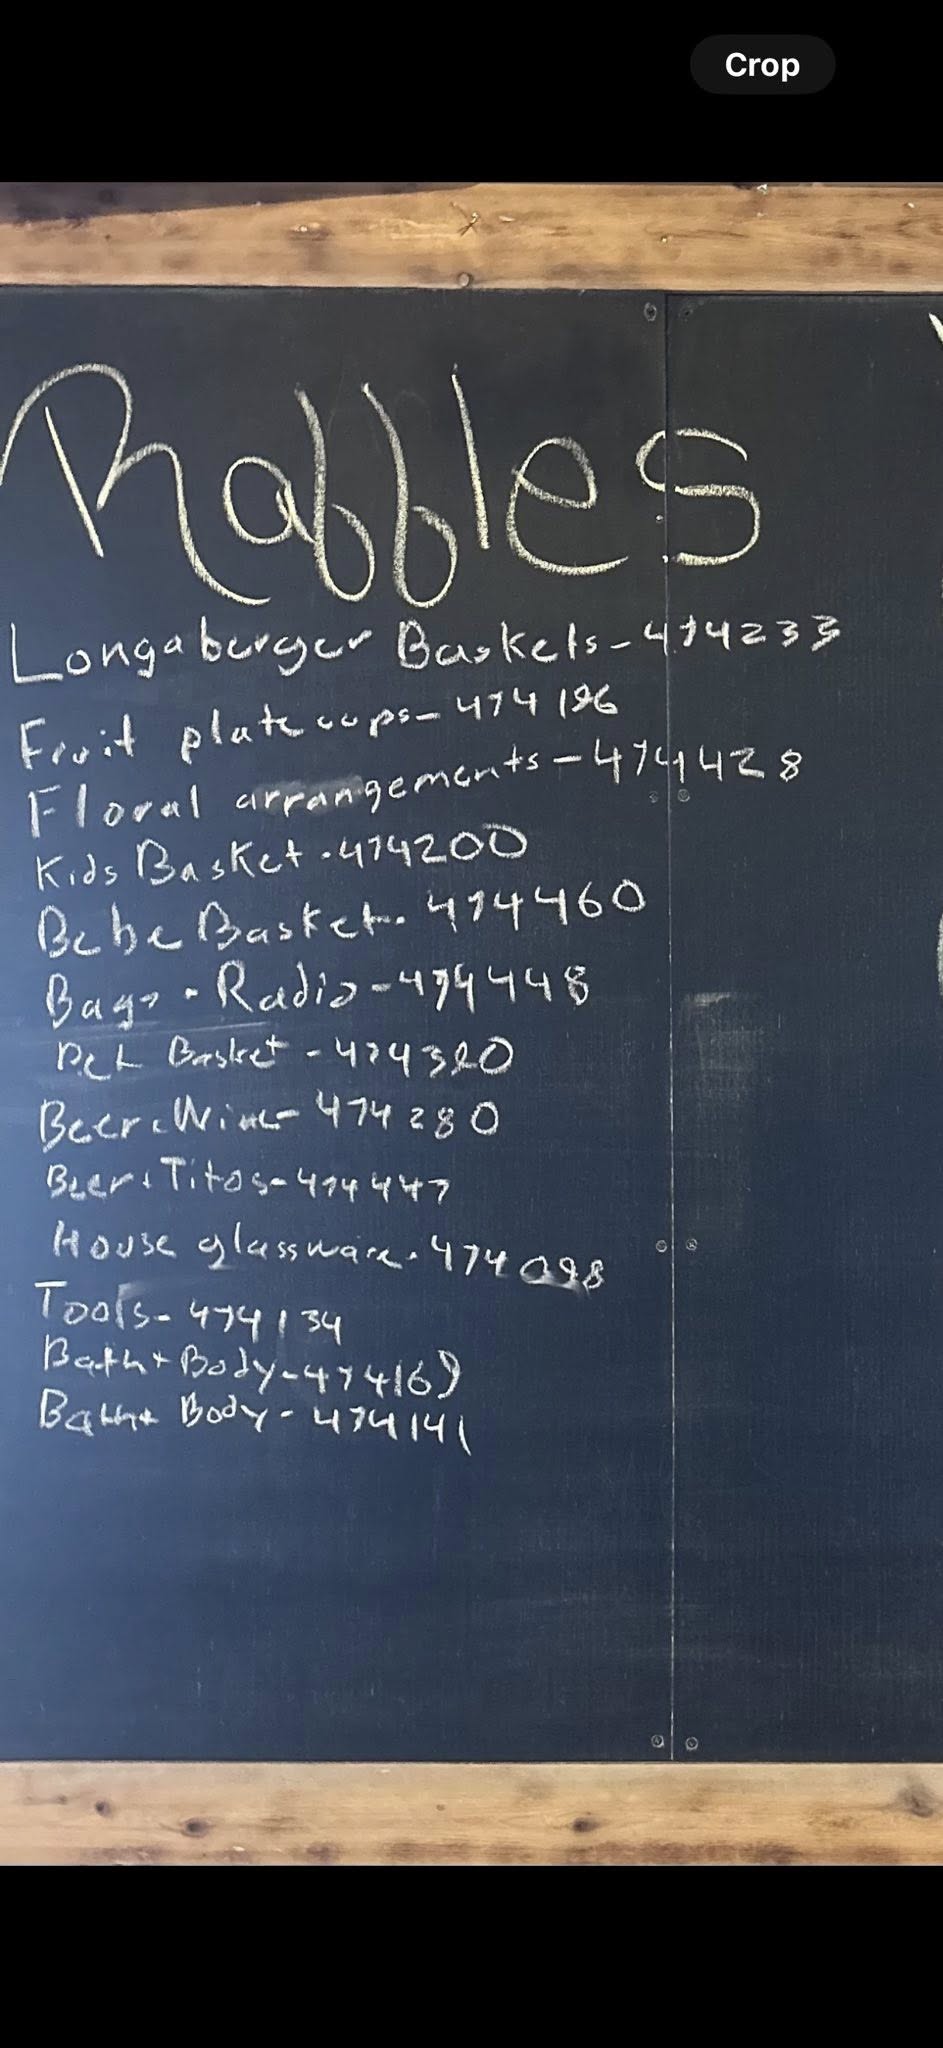 Crop
Raffles
Longaberger Baskets - 474233
Fruit plate cups - 474196
Floral arrangements - 474428
Kids Basket - 474200
Bebe Basket - 474460
Bags - Radio - 474448
Pet Basket - 474320
Beer + Wine - 474280
Beer + Titos - 474447
House glassware - 474098
Tools - 474134
Bath + Body - 474169
Bath + Body - 474141